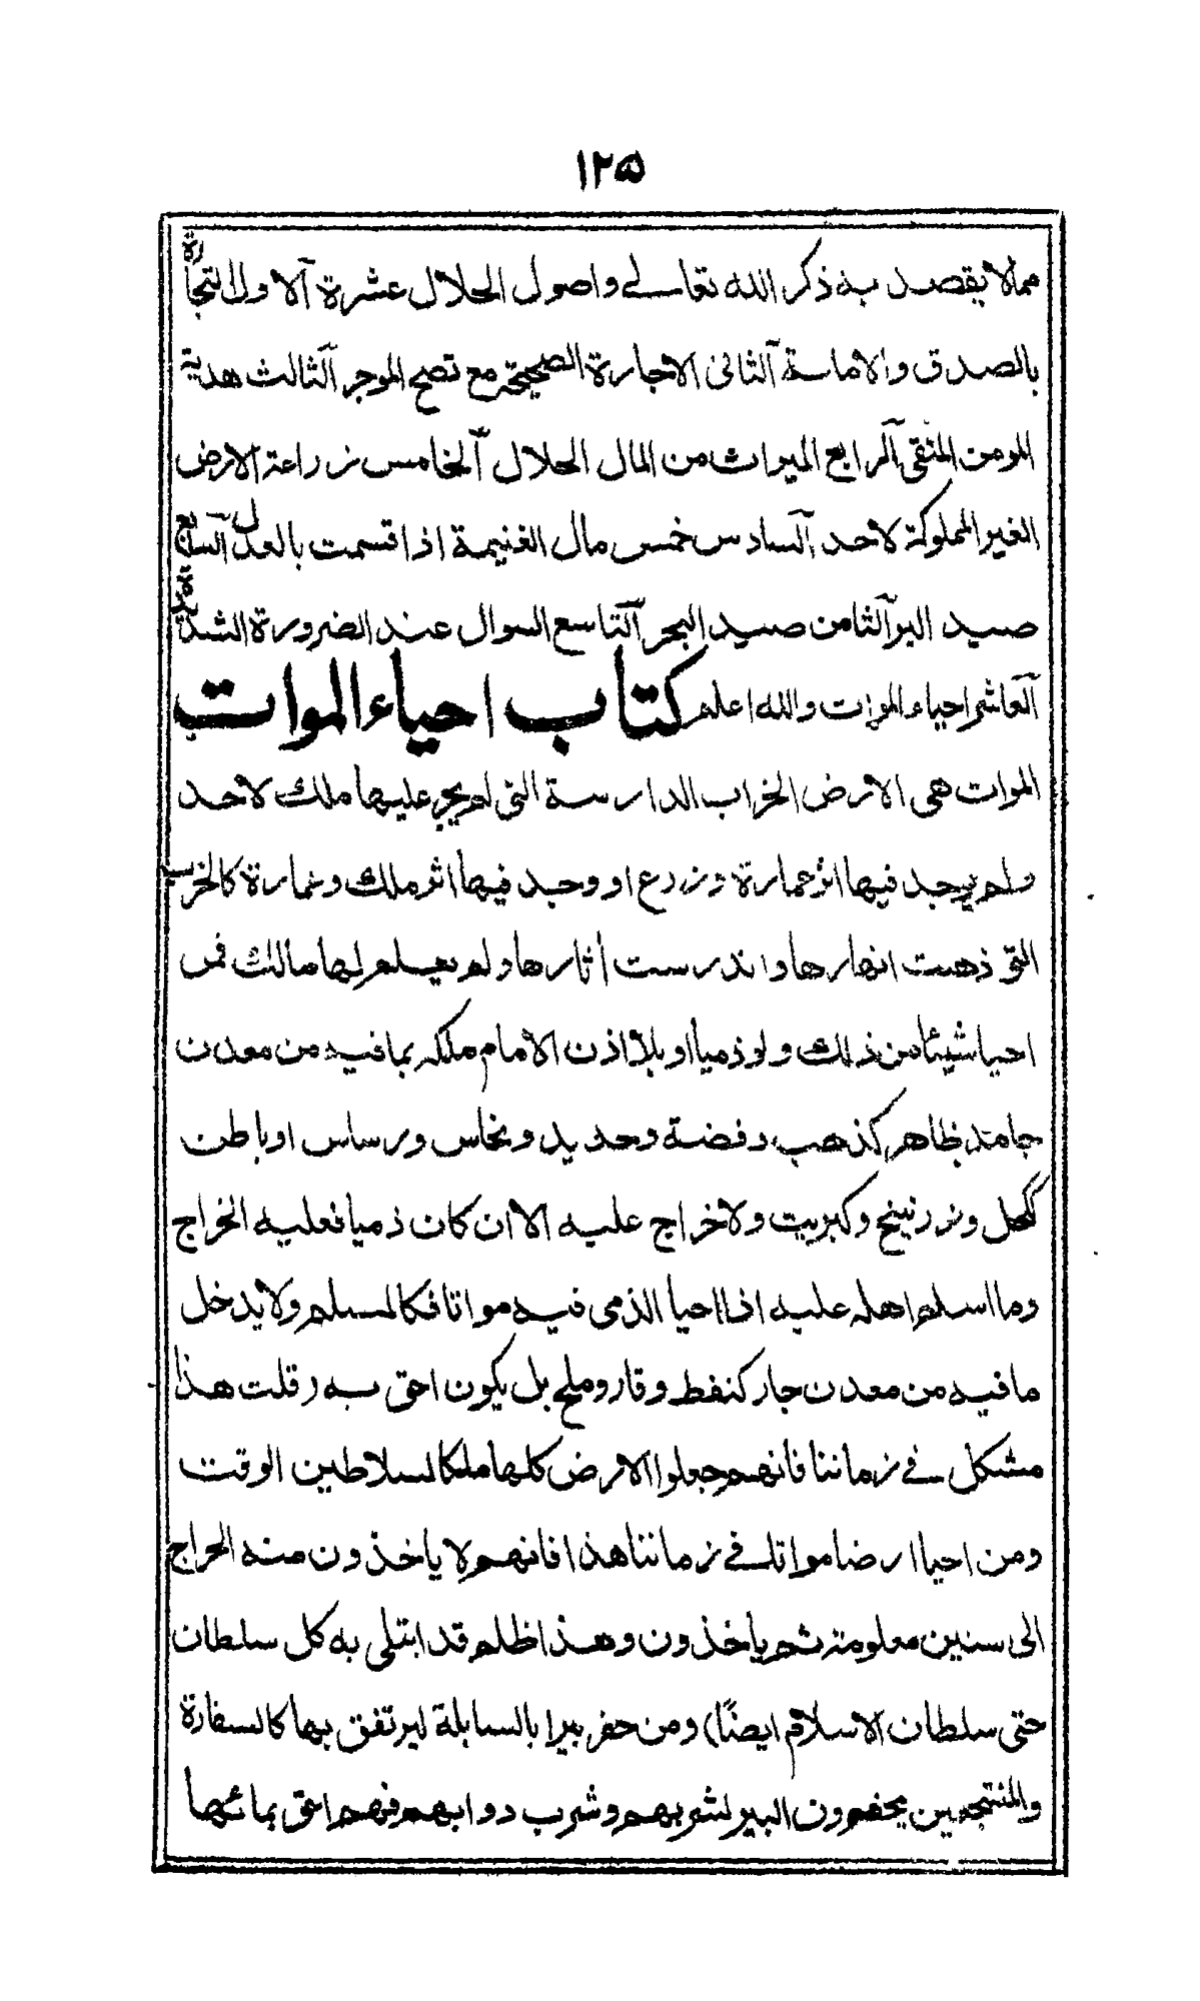 ١٢۵
مما لا يقصد به ذكر الله تعالے واصول الحلال عشرة آلاول التجارة
بالصدق والامانة آلثانی الاجارة الصحيحة مع نصح الموجر آلثالث هدية
المومن المتقی آلرابع الميراث من المال الحلال آلخامس زراعة الارض
الغير المملوكة لاحد آلسادس خمس مال الغنيمة اذا قسمت بالعدل آلسابع
صيد البر آلثامن صيد البحر آلتاسع السوال عند الضرورة الشديدة
آلعاشر احياء الموات والله اعلم كتاب احياء الموات
الموات هی الارض الخراب الدارسة التی لم يجر عليها ملك لاحد
ولم يوجد فيها اثر عمارة وزرع او وجد فيها اثر ملك وعمارة كالخرب
التی ذهبت انهارها واندرست أثارها ولم يعلم لها مالك فمن
احيا شيئا من ذلك ولو ذمياً او بلا اذن الامام ملكه بما فيه من معدن
جامد ظاهر كذهب وفضة وحديد ونحاس ورساس او باطن
ككحل وزرنيخ وكبريت ولا خراج عليه الا ان كان ذميا فعليه الخراج
وما اسلم اهله عليه اذا احيا الذمی فيه مواتا فكالمسلم ولا يدخل
ما فيه من معدن جار كنفط وقار وملح بل يكون احق به (قلت هذا
مشكل فے زماننا فانهم جعلوا الارض كلها ملكا لسلاطين الوقت
ومن احيا ارضا مواتا فے زماننا هذا فانهم لا ياخذون منه الخراج
الی سنين معلومة ثم ياخذون وهذا ظلم قد ابتلی به كل سلطان
حتی سلطان الاسلام ايضًا) ومن حفر بيرا بالسابلة ليرتفق بها كالسفارة
والمنتجعين يحفرون البير لشربهم وشرب دوابهم فهم احق بمائها